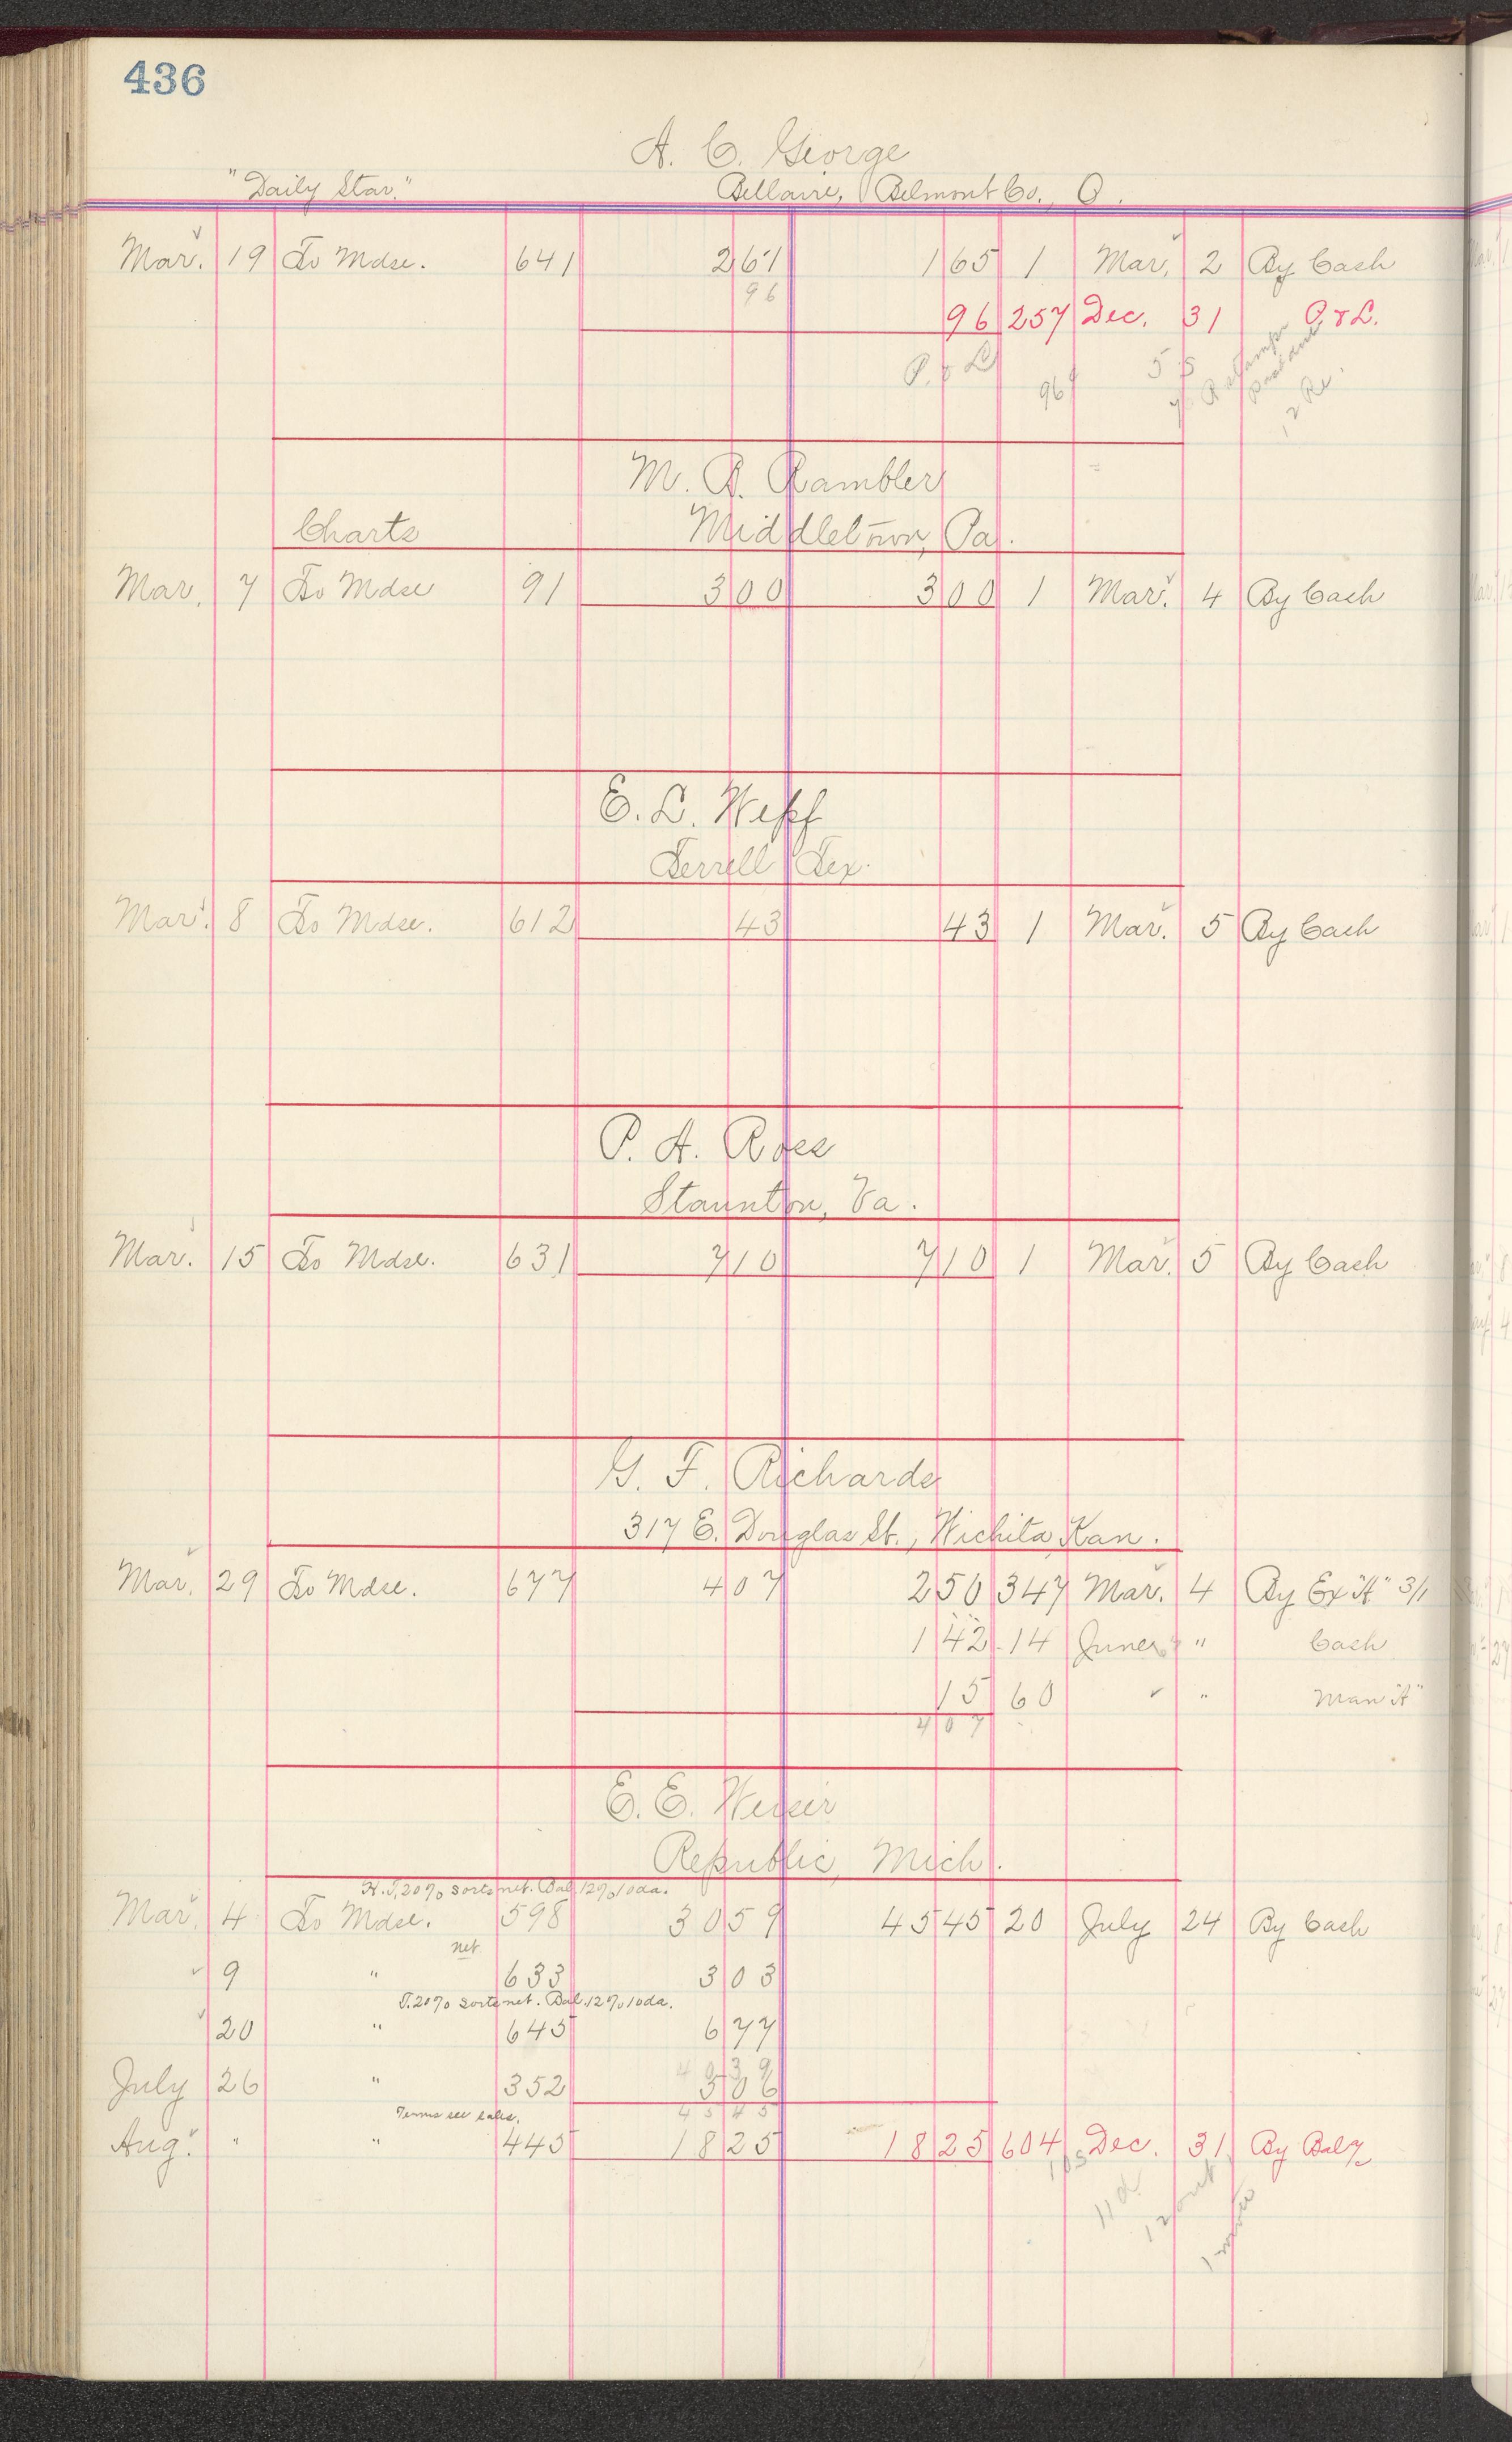 436
A. C. George
"Daily Star." Bellaire, Belmont Co., O.
Mar. 19 To Mdse. 641 2 61 1 65 1 Mar. 2 By Cash
96
96 257 Dec. 31 P. & L.
P. & L 96¢ 55
M. R. Rambler
Charts Middletown, Pa.
Mar. 7 To Mdse 91 3 00 3 00 1 Mar. 4 By Cash
E. L. Wepf
Terrell Tex.
Mar. 8 To Mdse. 612 43 43 1 Mar. 5 By Cash
P. A. Ross
Staunton, Va.
Mar. 15 To Mdse. 631 7 10 7 10 1 Mar. 5 By Cash
G. F. Richards
317 E. Douglas St., Wichita, Kan.
Mar. 29 To Mdse. 677 4 07 2 50 347 Mar. 4 By Ex "A" 3/1
1 42 14 June " Cash
15 60 " Man "A"
4 07
E. E. Weiser
Republic, Mich.
20% sorts net. Bal. 12% 10 da.
Mar. 4 To Mdse. 598 30 59 45 45 20 July 24 By Cash
net
9 " 633 3 03
T. 20% sorts net. Bal. 12% 10 da.
20 " 645 6 77
40 39
July 26 " 352 5 06
45 45
Terms see sales.
Aug. " " 445 18 25 18 25 604 Dec. 31 By Bal.